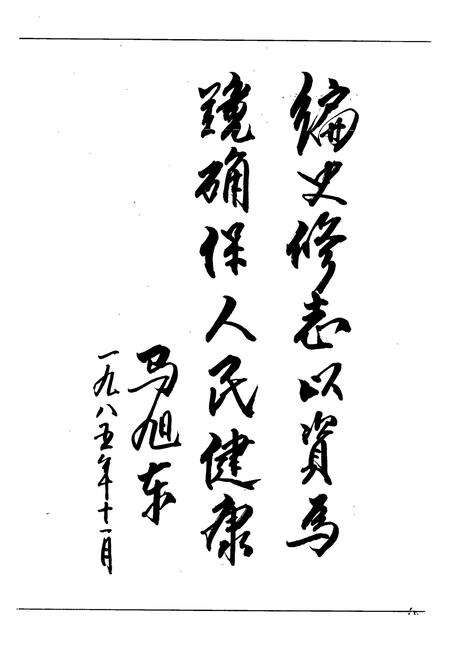 编史修志以資为
镜确保人民健康
马旭东
一九八五年十一月